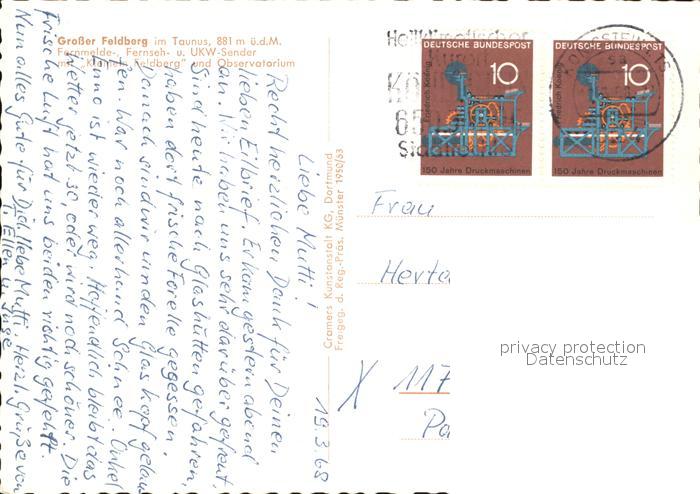 Großer Feldberg im Taunus, 881 m ü.d.M.
Fernmelde-, Fernseh- u. UKW-Sender
mit „Kleinem Feldberg" und Observatorium
Cramers Kunstanstalt KG, Dortmund
Freigeg. d. Reg.-Präs. Münster 1950/63
19.3.68
Liebe Mutti!
Recht herzlichen Dank für Deinen
lieben Eilbrief. Er kam gestern abend
an. Wir haben uns sehr darüber gefreut.
Sind heute nach Glashütten gefahren,
haben dort frische Forelle gegessen.
Danach sind wir um den Glaskopf gelau
fen. War noch allerhand Schnee. Onkel
ist wieder weg. Hoffentlich bleibt das
Wetter jetzt so, oder wird noch schöner. Die
frische Luft hat uns beiden richtig gefehlt.
Nun alles Gute für Dich, liebe Mutti. Herzl. Grüße von
Ellen u.
Heilklimatischer
Kurort
DEUTSCHE BUNDESPOST
10
Friedrich Koenig
150 Jahre Druckmaschinen
DEUTSCHE BUNDESPOST
10
Friedrich Koenig
150 Jahre Druckmaschinen
Frau
Herta
X 117
Pa
privacy protection
Datenschutz